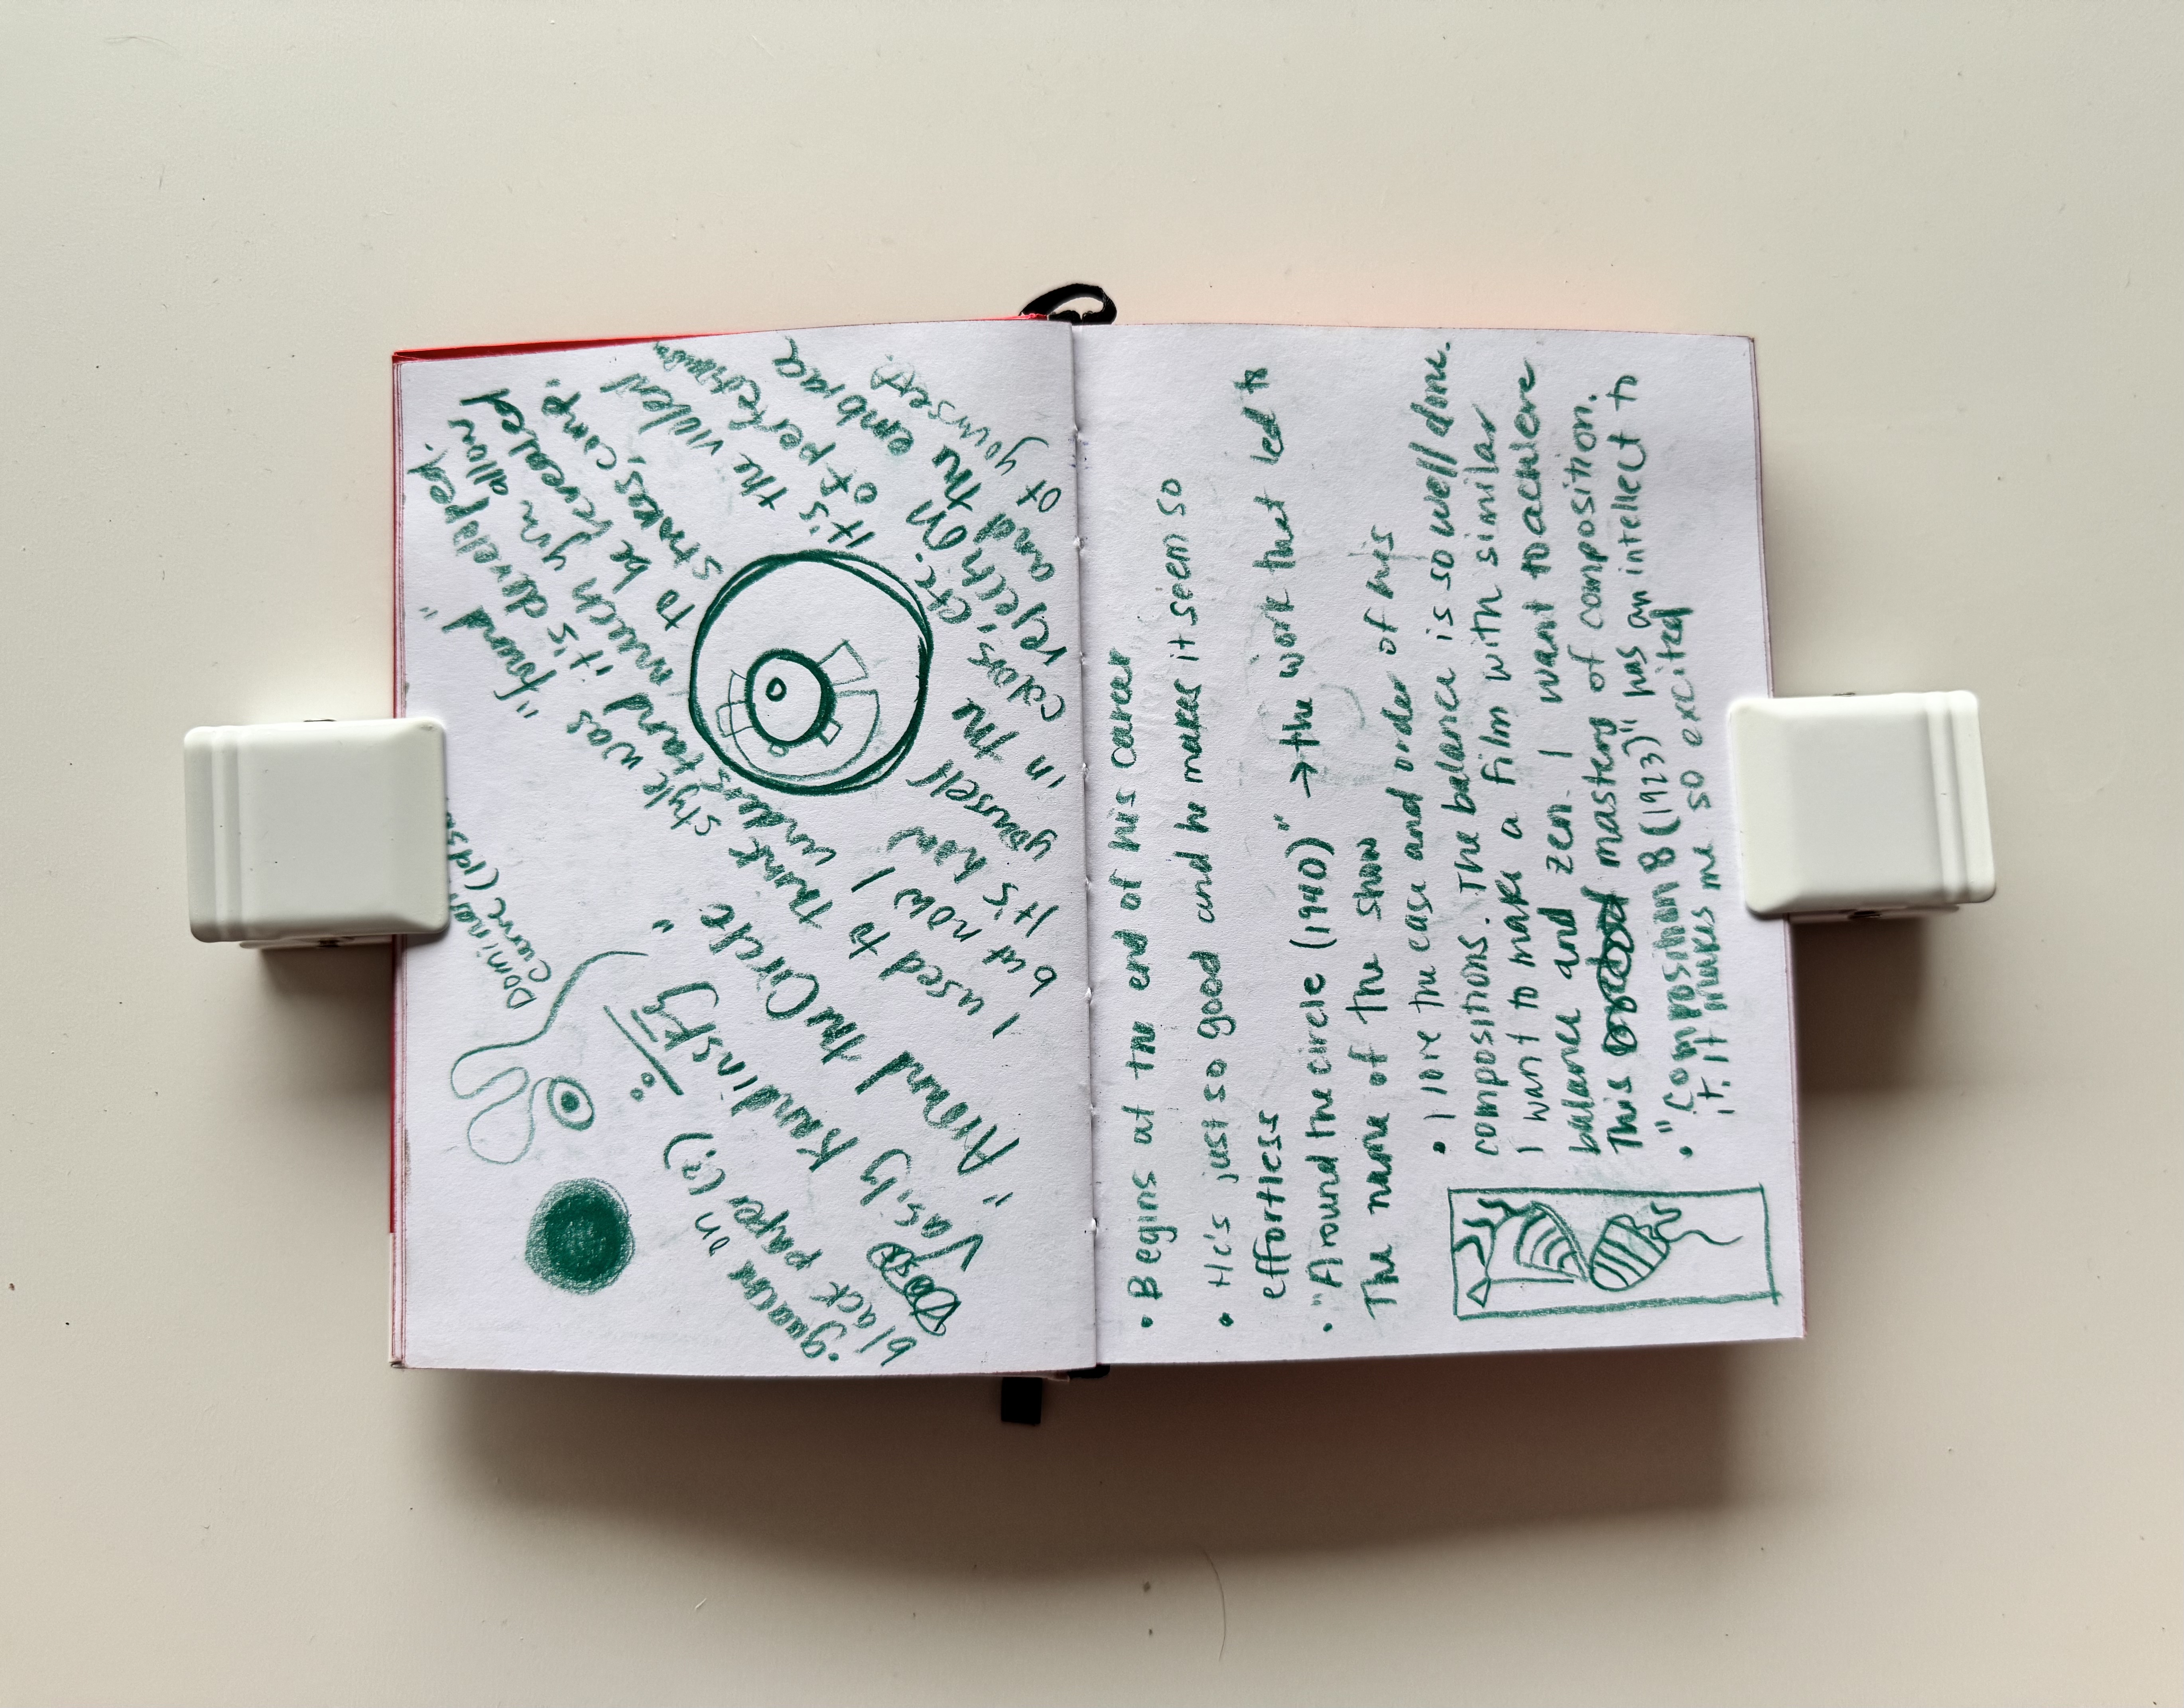 Dominant
Curve
• gouache on
black paper (?)
Vasily Kandinsky
"Around the Circle"
I used to think style was "found"
but now I understand it's developed.
It's how much yn allow
yourself to be revealed
in the strokes, comp.
colors, etc. It's the violent
rejection of perfectionism
and the embrace
of yourself.
• Begins at the end of his career
• He's just so good and he makes it seem so
effortless
• "Around the circle (1940)" → the work that led to
The name of the show
• I love the ease and order of his
compositions. The balance is so well done.
I want to make a film with similar
balance and zen. I want to achieve
This mastery of composition.
• "Composition 8 (1923)" has an intellect to
it. It makes me so excited